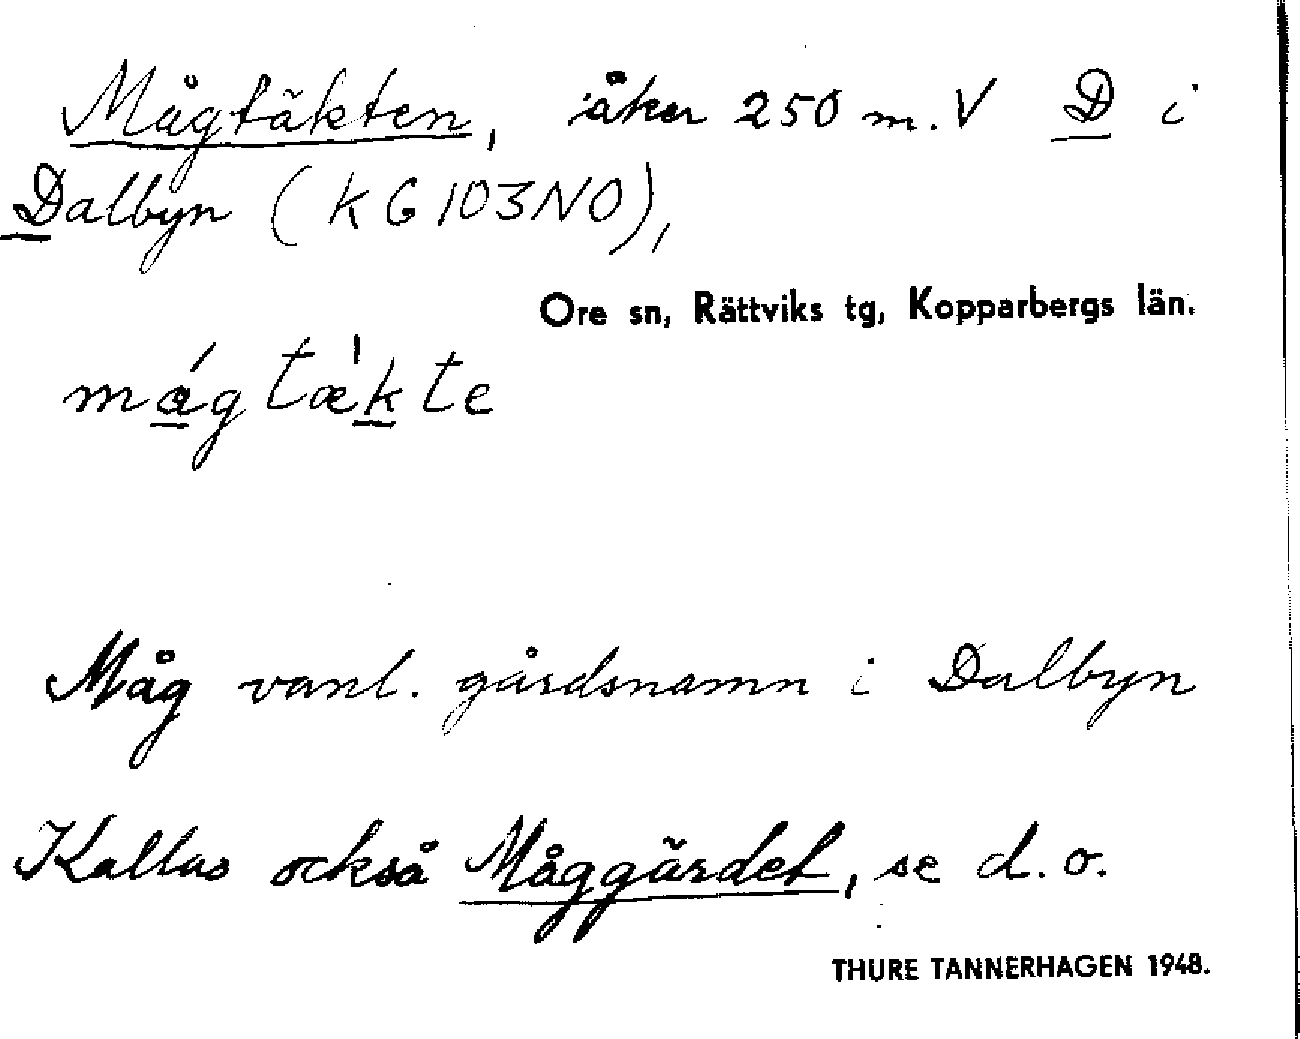 Mågtäkten, åker 250 m. V D i
Dalbyn (KG103NO),
Ore sn, Rättviks tg, Kopparbergs län.
mág tæ'k te
Måg vanl. gårdsnamn i Dalbyn
Kallas också Måggärdet, se d. o.
THURE TANNERHAGEN 1948.